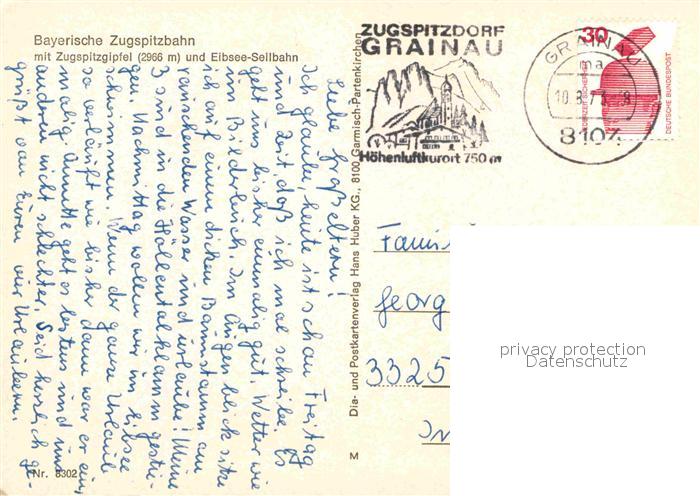 Bayerische Zugspitzbahn
mit Zugspitzgipfel (2966 m) und Eibsee-Seilbahn
Liebe Großeltern!
Ich glaube, heute ist schon Freitag
und Zeit, daß ich mal schreibe. Es
geht uns bisher einmalig gut. Wetter wie
im Bilderbuch. Im Augenblick sitze
ich auf einem dicken Baumstamm am
rauschenden Wasser und urlaube! Meine
3 sind in die Höllentalklamm gestie-
gen. Nachmittag wollen wir im Eibsee
schwimmen. Wenn der ganze Urlaub
so verläuft wie bisher dann war er ein-
malig. Annette geht es bestens und uns
anderen nicht schlechter. Seid herzlich ge-
grüßt von Euren vier Urlaubern.
Nr. 8302
Dia- und Postkartenverlag Hans Huber KG., 8100 Garmisch-Partenkirchen
M
ZUGSPITZDORF
GRAINAU
Höhenluftkurort 750 m
GRAINAU
ma
8104
30
DEUTSCHE BUNDESPOST
Georg
3325
privacy protection
Datenschutz